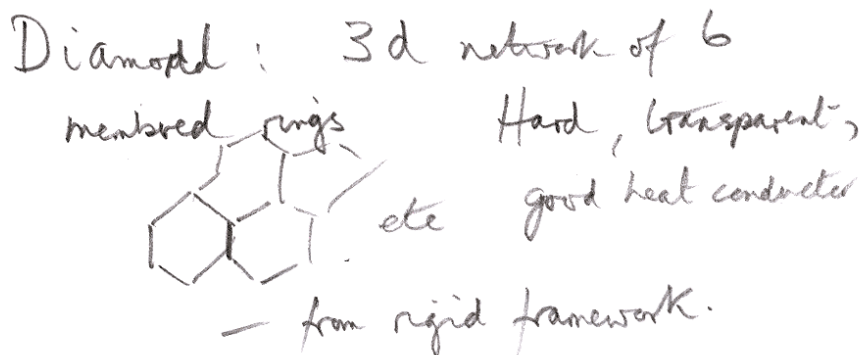 Diamond : 3d network of 6
membred rings Hard, transparent,
etc good heat conducter
— from rigid framework.